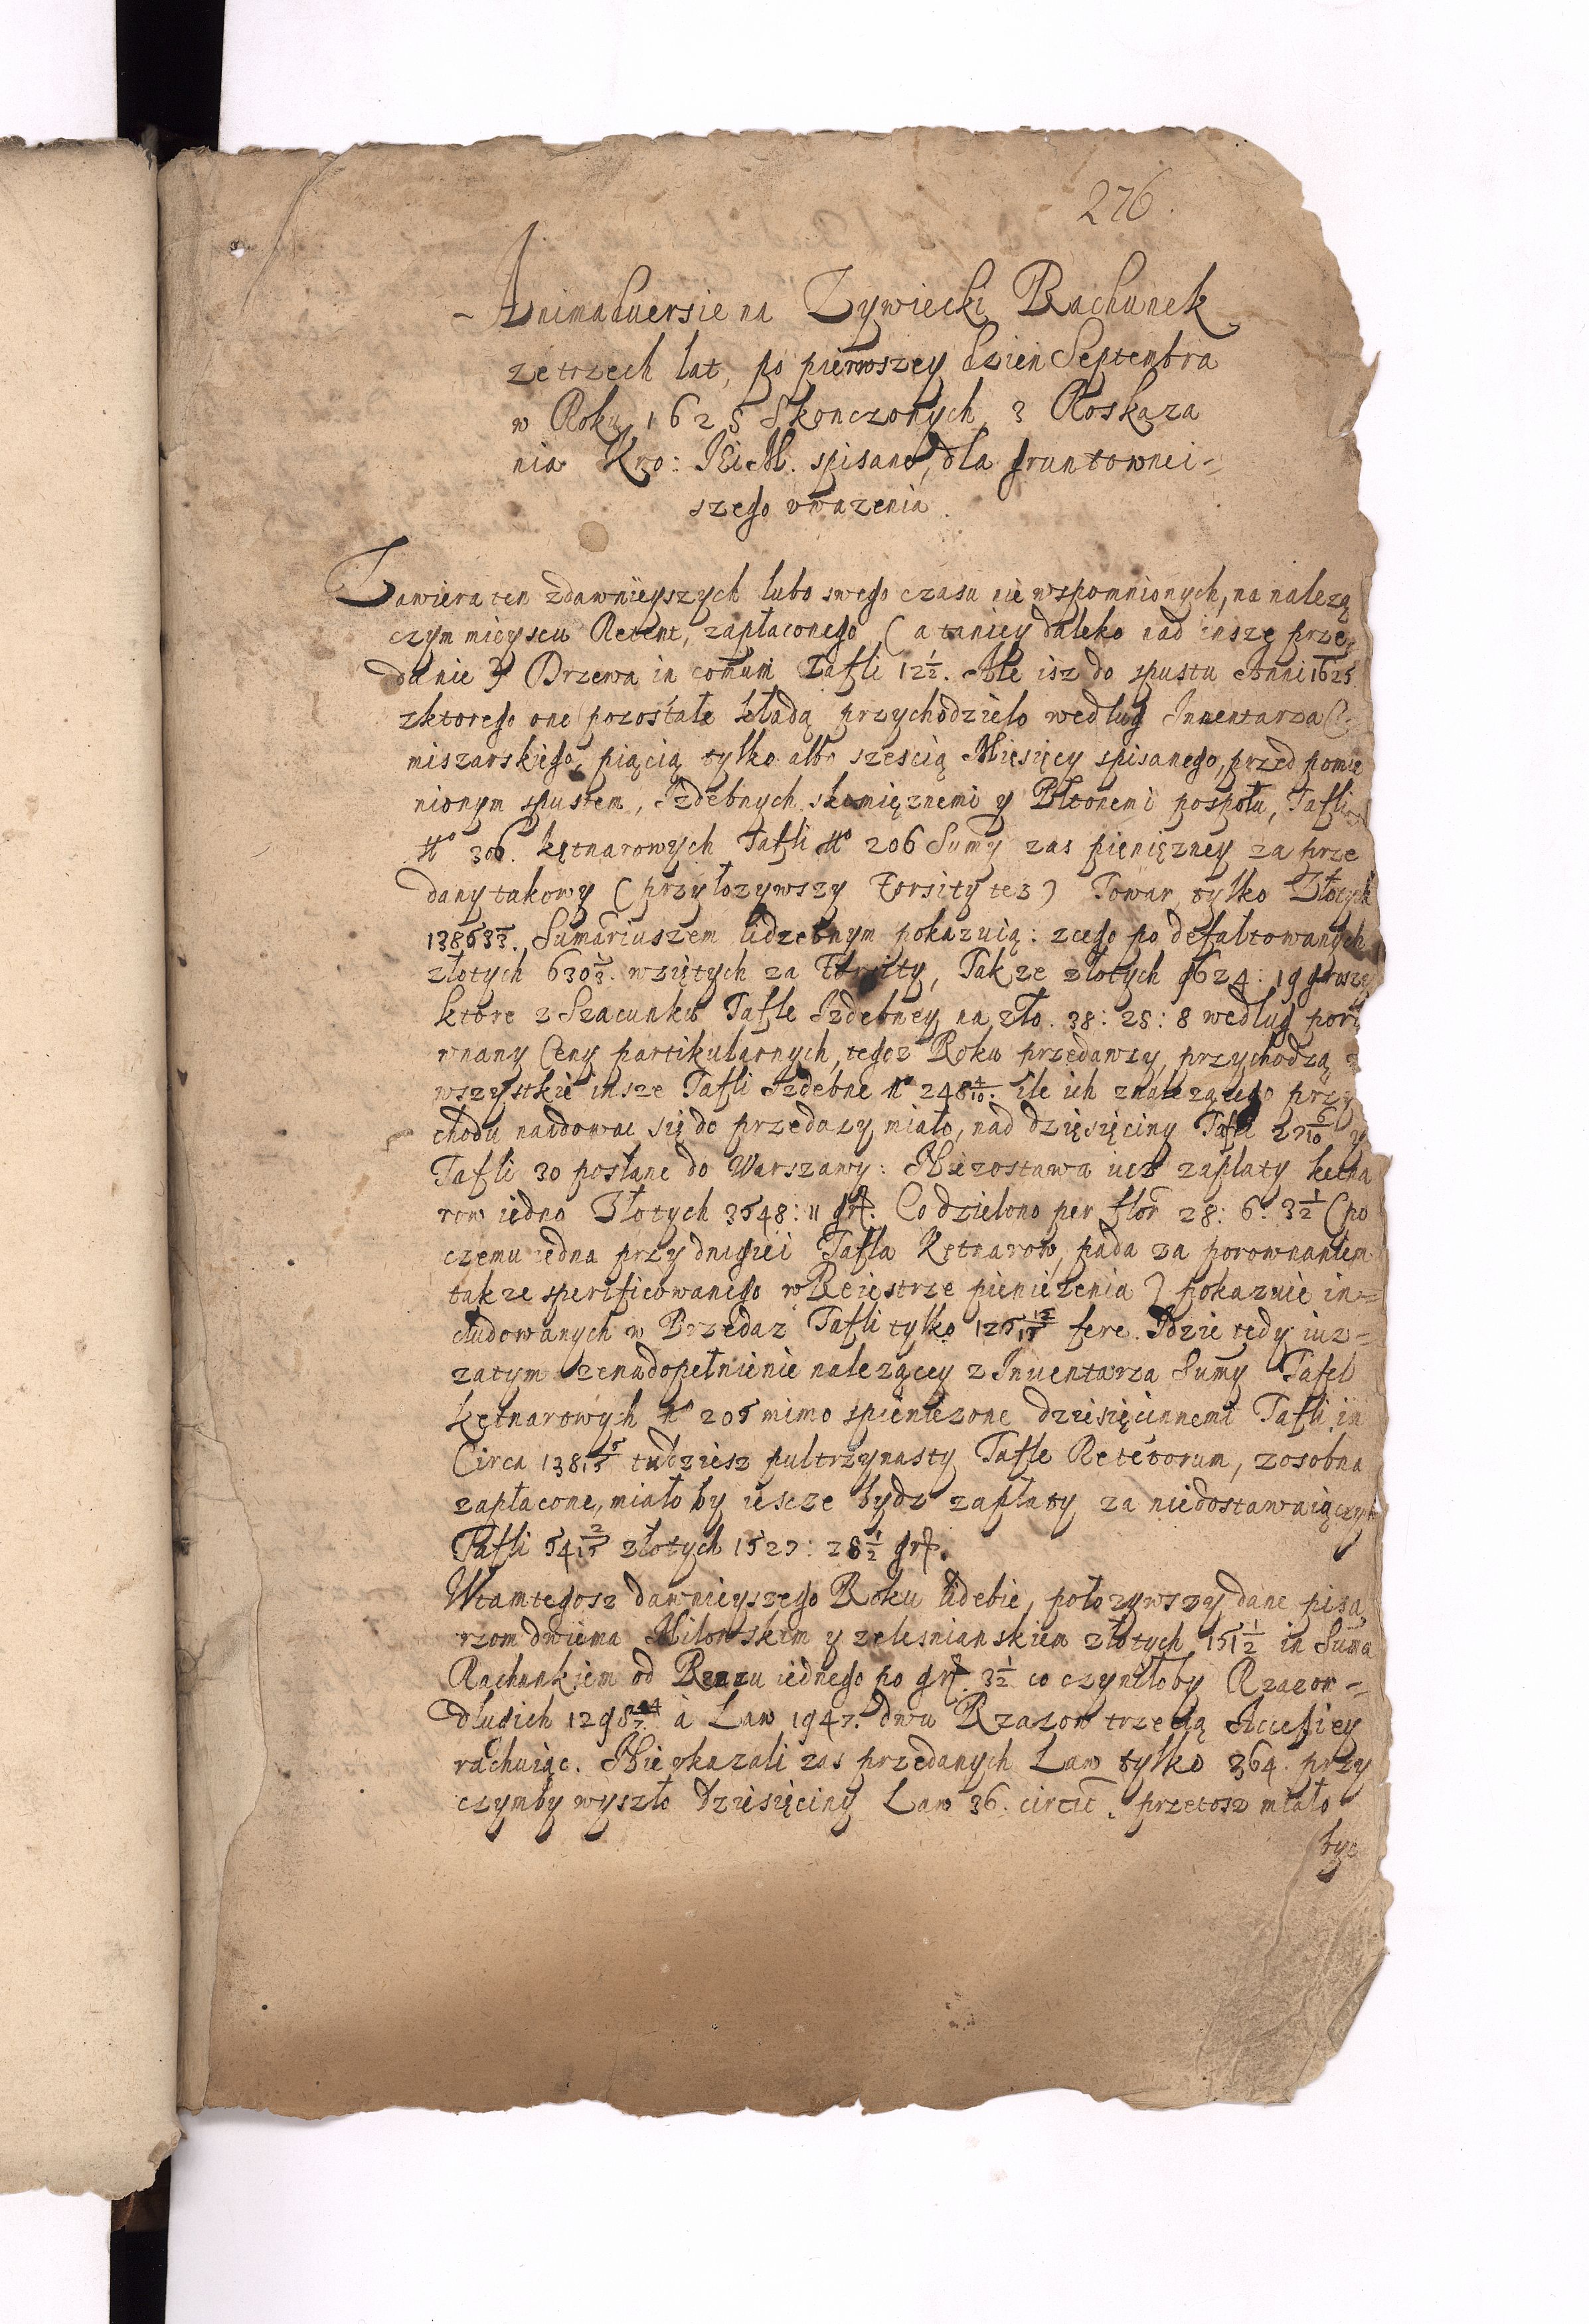 276.
Animaduersie na Zywiecki Rachunek
ze trzech lat, po pierwszey dzien Septembra
w Roku 1625 skonczonych, z Roskaza
nia Kro: JEi M. spisane, dla gruntownei=
szego vwazenia.
Zawiera ten zdawnieyszych lubo swego czasu nie wspomnionych, na nalezą
czym mieyscu Retent, zapłaconego (a taniey daleko nad insze prze
danie) Drzewa in comuni Tafli 12½. Ale isz do spustu Anni 1625
zktorego one pozostałe kładą przychodzielo według Inuentarza Co
miszarskiego, piącią tylko albo szescią Miesięcy spisanego, przed pomie
nionym spustem, Izdebnych skomięznemi y Bltonemi pospołu, Tafli
No 306. kętnarowych Tafli No 206 Sumy zas pienięzney za prze
dany takowy (przyłozywszy Forsity tez) Towar tylko Złotych
Sumariuszem lidzebnym pokazuią: zcego po defaltowanych
złotych wziętych za Forsity, Takze złotych 9624: 19 groszy
ktore z Szacunku Tafle Izdebney na zło. 38: 25: 8 według poro
wnany Ceny partikularnych, tegoz Roku przedawzy, przychodzą z
wszystkie insze Tafli Izdebne No 248 4/10. ile ich znalezącego przy
chodu naidowac się do przedazy miało, nad dzięsięciny Tafel 27 6/10 y
Tafli 30 posłane do Warszawy: Nie zostawa iuz zapłaty kętna
row iedno Złotych 3548: 11 gr. Co dzielono per flor 28: 6: 3½ (po
czemu iedna przy drugiei Tafla Kętnarow, pada za porownaniem
takze speczficowanego w Reiestrze pieniezenia) pokazuie in=
cludowanych w Przedaz Tafli tylko 125 12/15 fere. Idzie tedy iuz=
zatym ze na dopełnienie nalezącey z Inuentarza Sumy Tafel
kętnarowych No 205 mimo spieniezone dziesięcinnemi Tafli in
Circa 138 5/15 tudziesz pultrzynasty Tafle Retetorum, zosobna
zapłacone, miało by iescze bydz zapłaty za niedostawaiączych
Tafli 54 2/15 złotych 1527: 28½ gr.
W tamtegosz dawnieyszego Roku lidebie, połozywszy dane pisa
rzom dwiema Milowskiem y zelesnianskiem złotych 151½ in Suma
Rachunkiem od Rzazu iednego po gr. 3½ co czyniłoby Rzazow=
dlugich 1298 à Law 1947. dwu Rzazow trzecią Accesiey
rachuiąc. Nie vkazali zas przedanych Law tylko 364. przy
czymby wyszło dziesięciny Law 36. circit. przetosz miało
byc